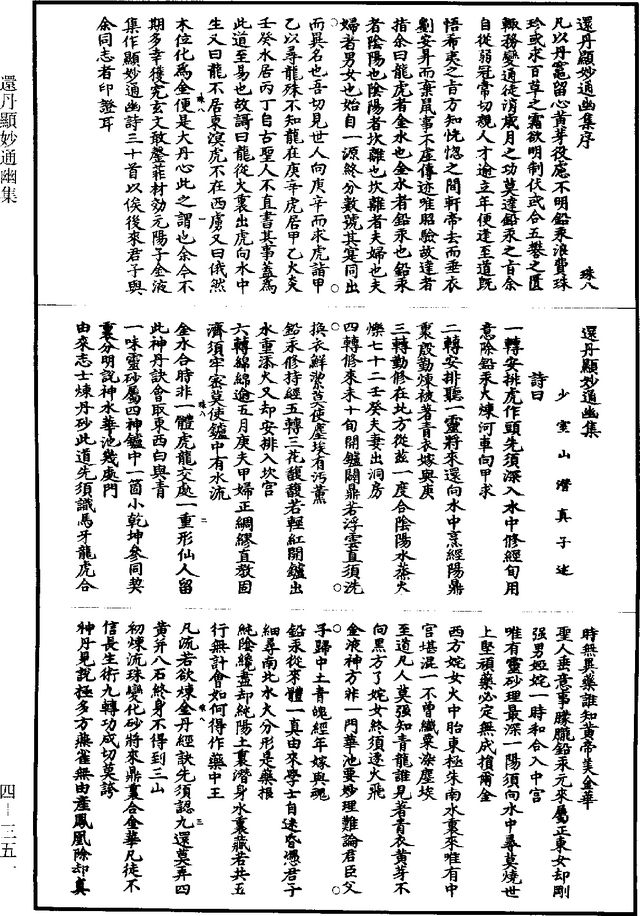 還丹顯妙通幽集
四―三五一
還丹顯妙通幽集序
珠八
凡以丹竈留心黃芽役慮不明鉛汞浪費珠
珍或求百草之霜欲明制伏或合五礬之匱
輒務變通徒消歲月之功莫達鉛汞之首余
自從弱冠常切親人才逾立年便逢至道既
悟希夷之音方知恍惚之間軒帝去而垂衣
劉安昇而棄鼠事不虛傳迹唯昭驗故達者
指余曰龍虎者金水也金水者鉛汞也鉛汞
者陰陽也陰陽者坎離也坎離者夫婦也夫
婦者男女也始自一源終分數號其寔同出
而異名也吾切見世人向庚辛而求虎詣甲
乙以尋龍殊不知龍在庚辛虎居甲乙火炎
壬癸水居丙丁自古聖人不直書其事蓋為
此道至易也故謂曰龍從火裏出虎向水中
生又曰龍不居東溟虎不在西虜又曰俄然
木位化為金便是大丹心此之謂也余今不
期多幸獲究玄文敢罄菲材効元陽子金液
集作顯妙通幽詩三十首以俟後來君子與
余同志者印證耳
還丹顯妙通幽集
少室山潛真子述
詩曰
一轉安排虎作頭先須深入水中修經旬用
意除鉛汞火煉河車向甲求
二轉安排聽一靈將來還向水中烹經陽鼎
裏殷勤煉被著青衣嫁與庚
三轉勤修在北方從茲一度合陰陽水蒸火
爍七十二壬癸夫妻出洞房
四轉修來未十旬開鑪闢鼎若浮雲直須洗
換衣鮮潔莫使塵埃有汚薰
鉛汞修持經五轉三花馥馥若輕紅開鑪出
水重添火又却安排入坎宮
六轉綿綿逾五月庚夫甲婦正綢繆直教固
濟須牢密莫使鑪中有水流
金水合時非一體虎龍交處一重形仙人留
此神丹訣會取東西白與青
一味靈砂屬四神鑪中一箇小乾坤參同契
裏分明說神水華池幾處門
由來志士煉丹砂此道先須識馬牙龍虎合
時無異藥誰知黃帝美金華
聖人垂意事朦朧鉛汞元來屬正東女却剛
强男姹妧一時和合入中宮
唯有靈砂理最深一陽須向水中尋莫燒世
上堅頑藥必定無成損爾金
西方姹女火中胎東極朱南水裏來唯有中
宮堪混一不曾纖粟染塵埃
至道凡人莫強知青龍誰見著青衣黃芽不
向黑方了姹女終須逐火飛
金液神方非一門華池要妙理難論君臣父
子歸中土青魄經年嫁與魂
鉛汞從來體一真由來學士自迷昏憑君子
細尋南北水火分形是藥根
純陰纔盡却純陽土裏潛身水裏藏若共五
行無計會如何得作藥中王
凡流若欲煉金丹經訣先須認九還莫弄四
黃并八石終身不得到三山
初煉流珠變化砂將來鼎裏合金華凡徒不
信長生術九轉功成切莫誇
神丹見說極多方燕雀無由產鳳凰除却真